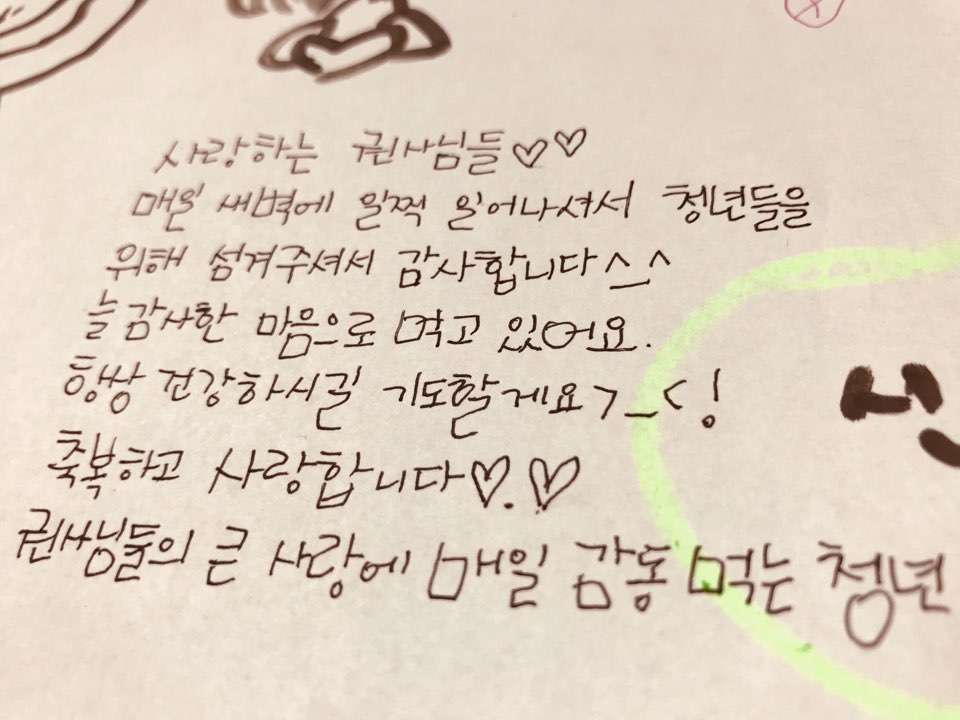 사랑하는 권사님들♡♡
매일 새벽에 일찍 일어나셔서 청년들을
위해 섬겨주셔서 감사합니다^_^
늘 감사한 마음으로 먹고 있어요.
항쌍 건강하시길 기도할게요>_<!
축복하고 사랑합니다♡.♡
권사님들의 큰 사랑에 매일 감동 먹는 청년